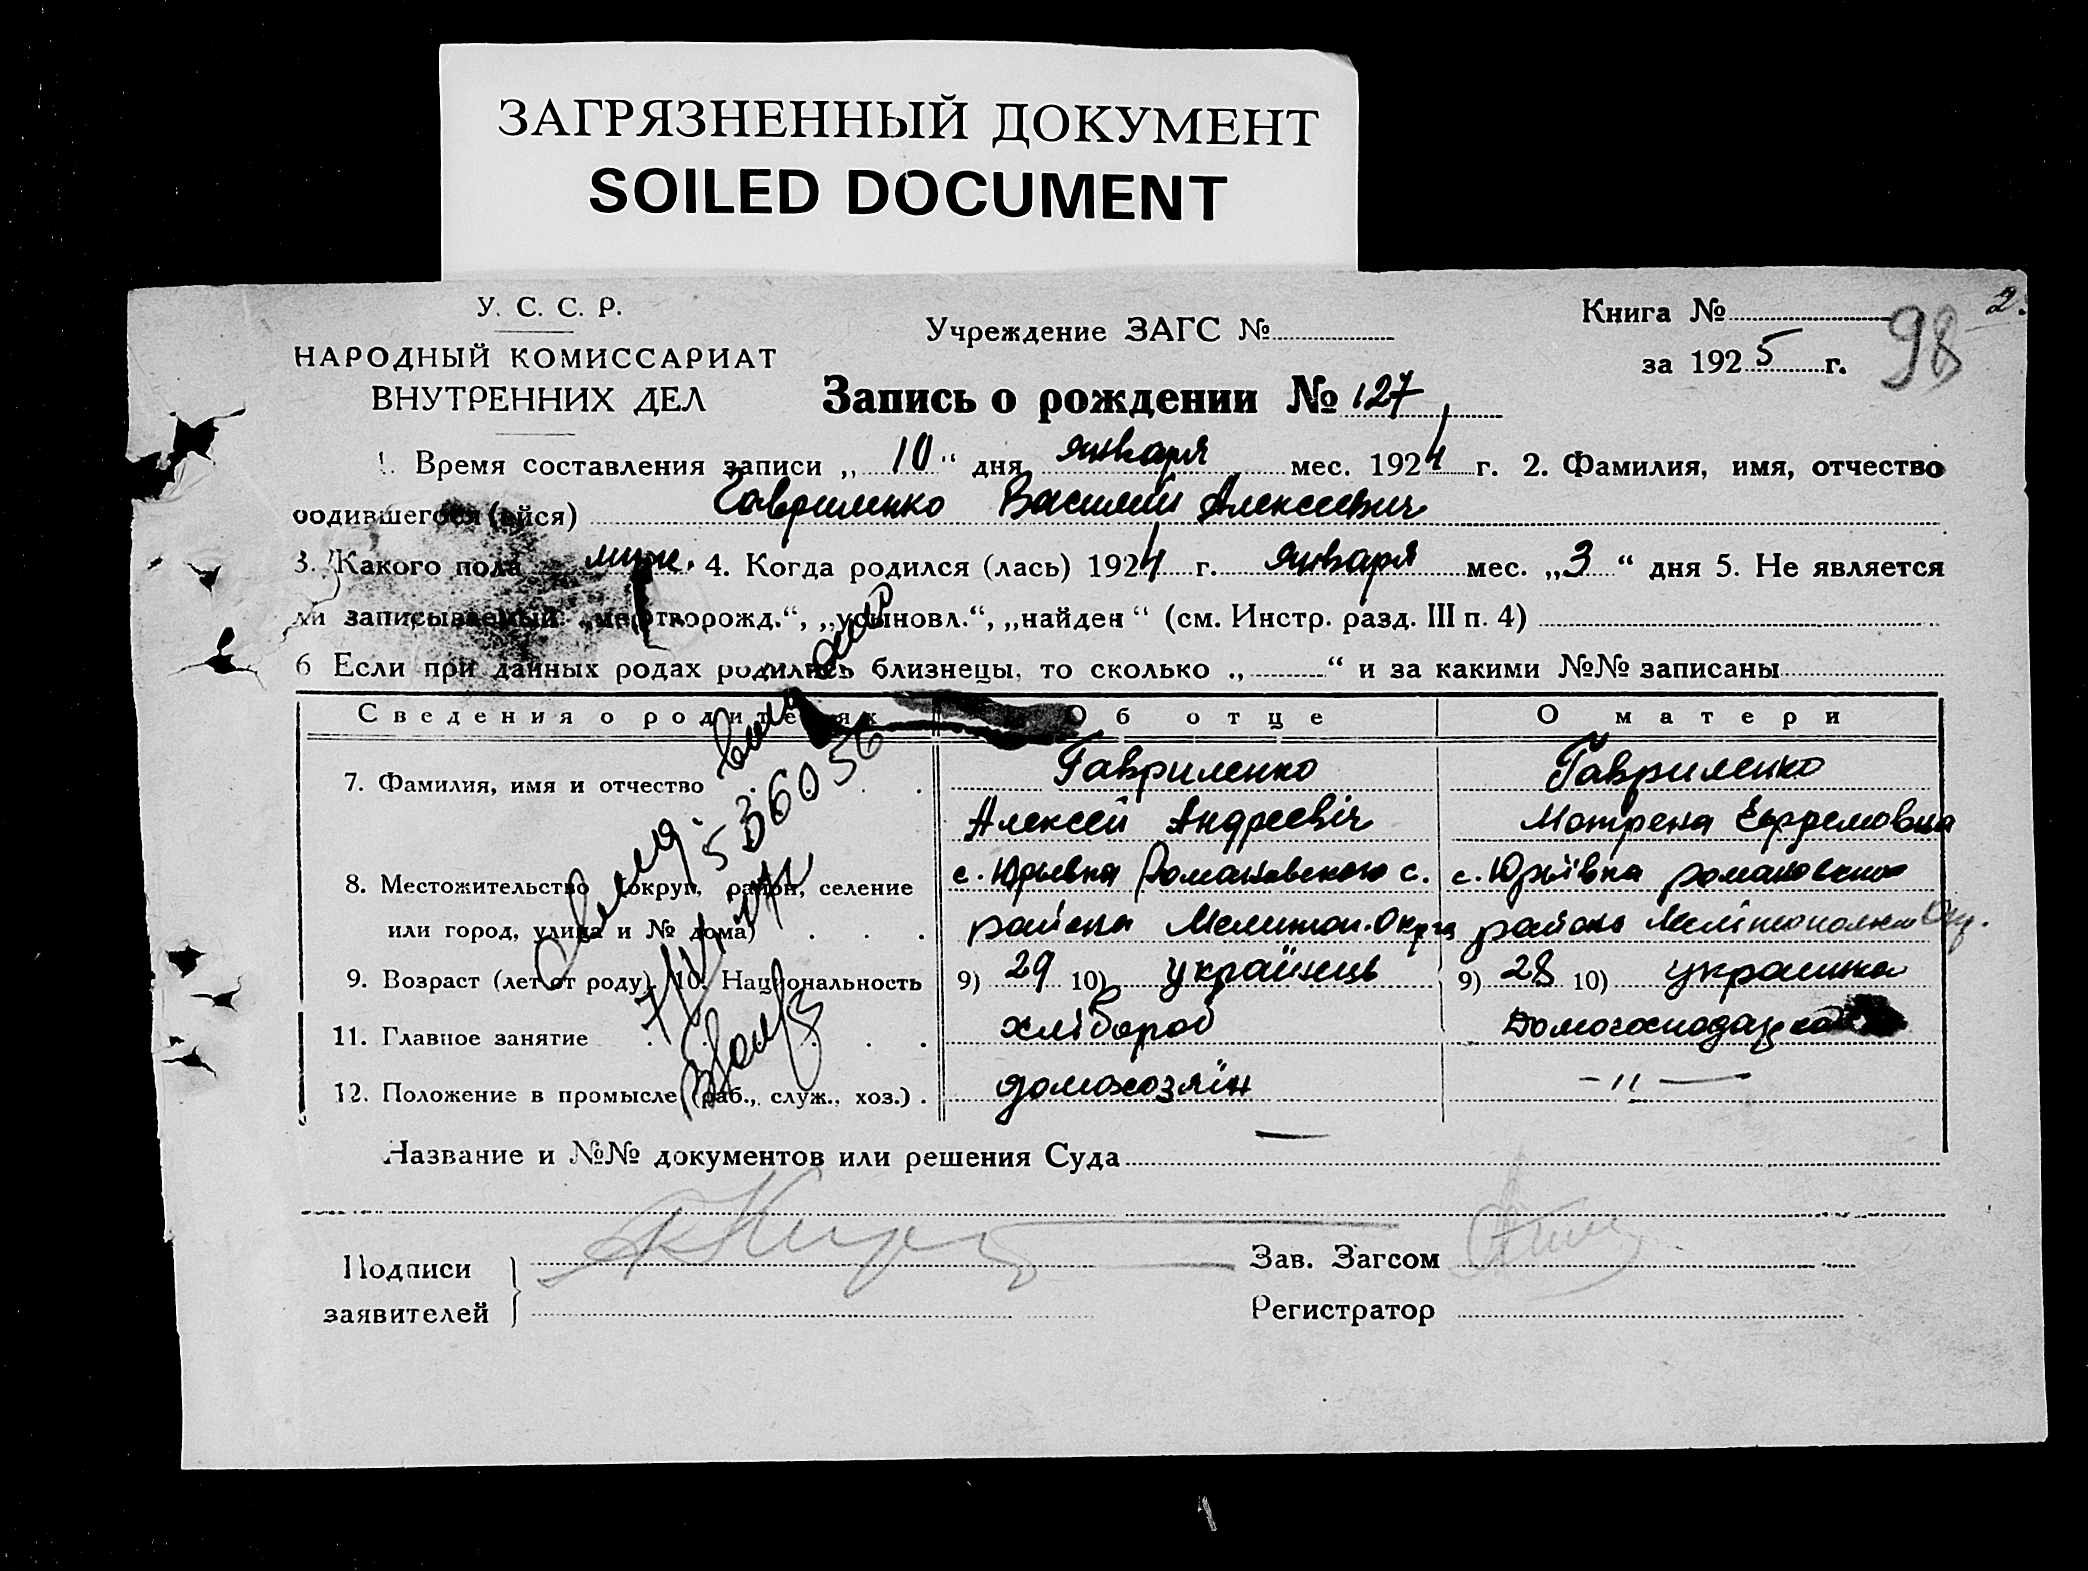 ЗАГРЯЗНЕННЫЙ ДОКУМЕНТ
SOILED DOCUMENT
У. С. С. Р.
НАРОДНЫЙ КОМИССАРИАТ
ВНУТРЕННИХ ДЕЛ
Учреждение ЗАГС №
Книга №
2.
за 1925 г.
98
Запись о рождении № 127
1. Время составления записи „ 10 “ дня января мес. 1924 г. 2. Фамилия, имя, отчество
родившегося (ейся) Гавриленко Василий Алексеевич
3. Какого пола муж. 4. Когда родился (лась) 1924 г. января мес. „ 3 “ дня 5. Не является
ли записываемый „мертворожд.“, „усыновл.“, „найден“ (см. Инстр. разд. III п. 4)
6 Если при данных родах родились близнецы, то сколько „ “ и за какими №№ записаны
Сведения о родителях Об отце О матери
7. Фамилия, имя и отчество Гавриленко Гавриленко
Алексей Андреевіч Мотрена Ефремовна
8. Местожительство (округ, район, селение с. Юрьевка Романовского с. с. Юрьівка романовского
или город, улица и № дома) района Мелитоп. Округа района Мелітопольск Окр.
9. Возраст (лет от роду) 10. Национальность 9) 29 10) українець 9) 28 10) украинка
11. Главное занятие хлібороб Домогосподарка
12. Положение в промысле (раб., служ., хоз.) домохозяін -〃-
536056
Название и №№ документов или решения Суда —
Подписи
заявителей
Зав. Загсом
Регистратор